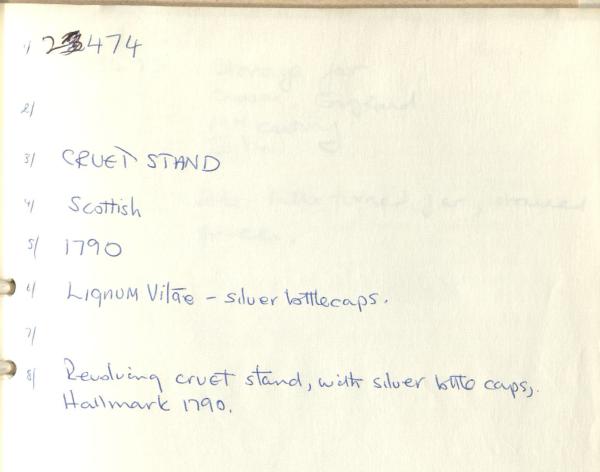 1/ 2 474
2/
3/ CRUET STAND
4/ Scottish
5/ 1790
6/ Lignum Vitae - silver bottlecaps.
7/
8/ Revolving cruet stand, with silver bottle caps,.
Hallmark 1790.